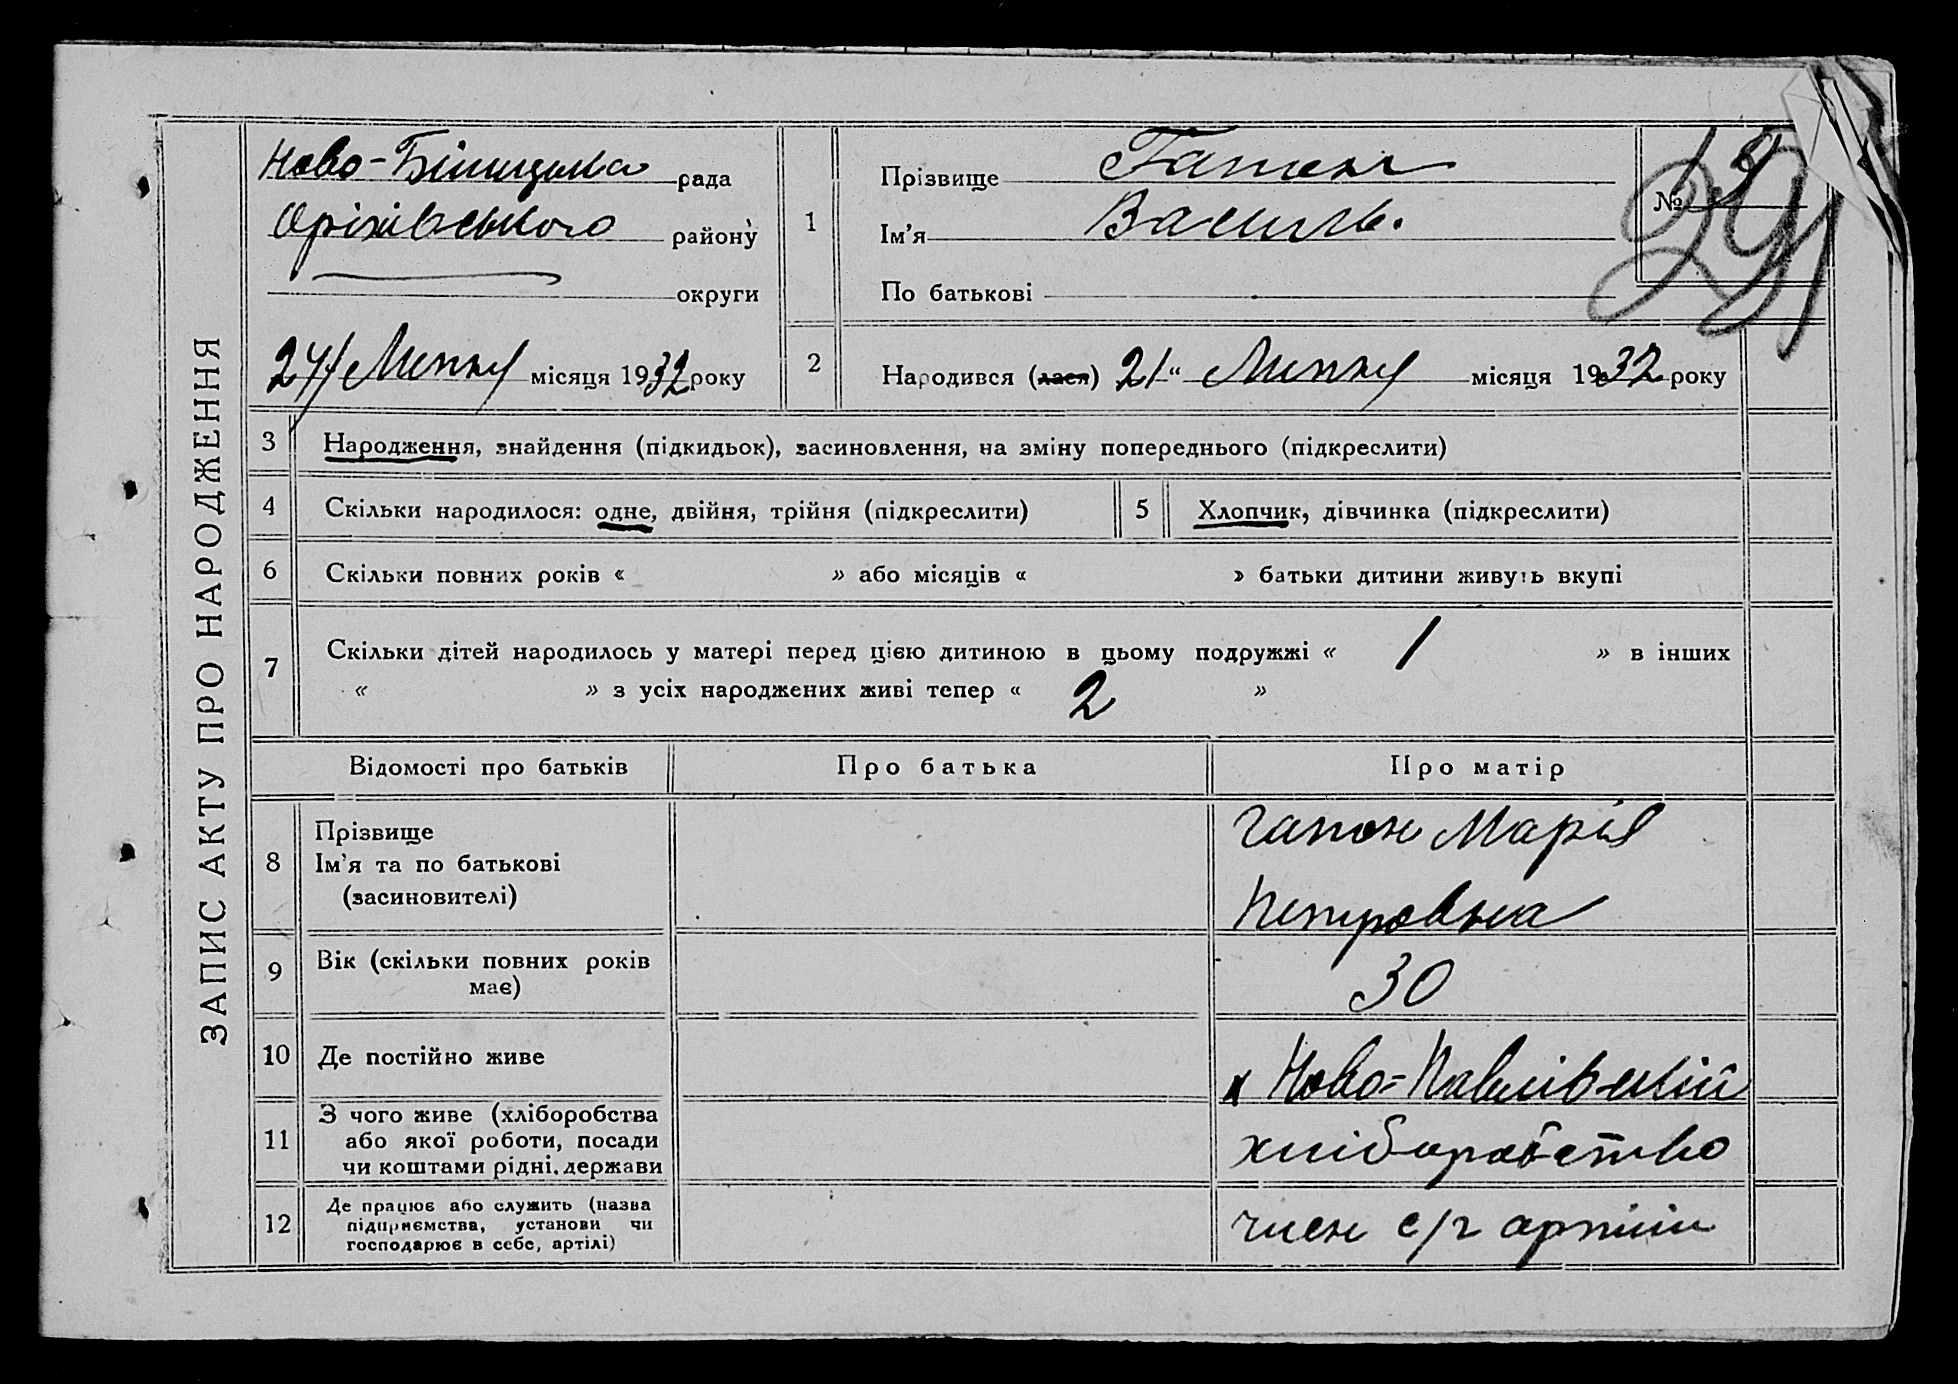 ЗАПИС АКТУ ПРО НАРОДЖЕННЯ
Ново- рада
Оріхівського району
округи
24/ Липня місяця 1932 року
1
Прізвище Гапон
Ім'я Василь.
По батькові
№
2
Народився (лася) 21 „ Липня місяця 1932 року
3 Народження, знайдення (підкидьок), засиновлення, на зміну попереднього (підкреслити)
4 Скільки народилося: одне, двійня, трійня (підкреслити) 5 Хлопчик, дівчинка (підкреслити)
6 Скільки повних років « » або місяців « » батьки дитини живуть вкупі
7 Скільки дітей народилось у матері перед цією дитиною в цьому подружжі « 1 » в інших
« » з усіх народжених живі тепер « 2 »
Відомості про батьків Про батька Про матір
8 Прізвище
Ім'я та по батькові
(засиновителі)
Гапон Марія
Петровна
9 Вік (скільки повних років
має)
30
10 Де постійно живе
х Ново-Павлівській
11 З чого живе (хліборобства
або якої роботи, посади
чи коштами рідні, держави
хліборобство
12 Де працює або служить (назва
підприємства, установи чи
господарює в себе, артілі)
член с/г артіли